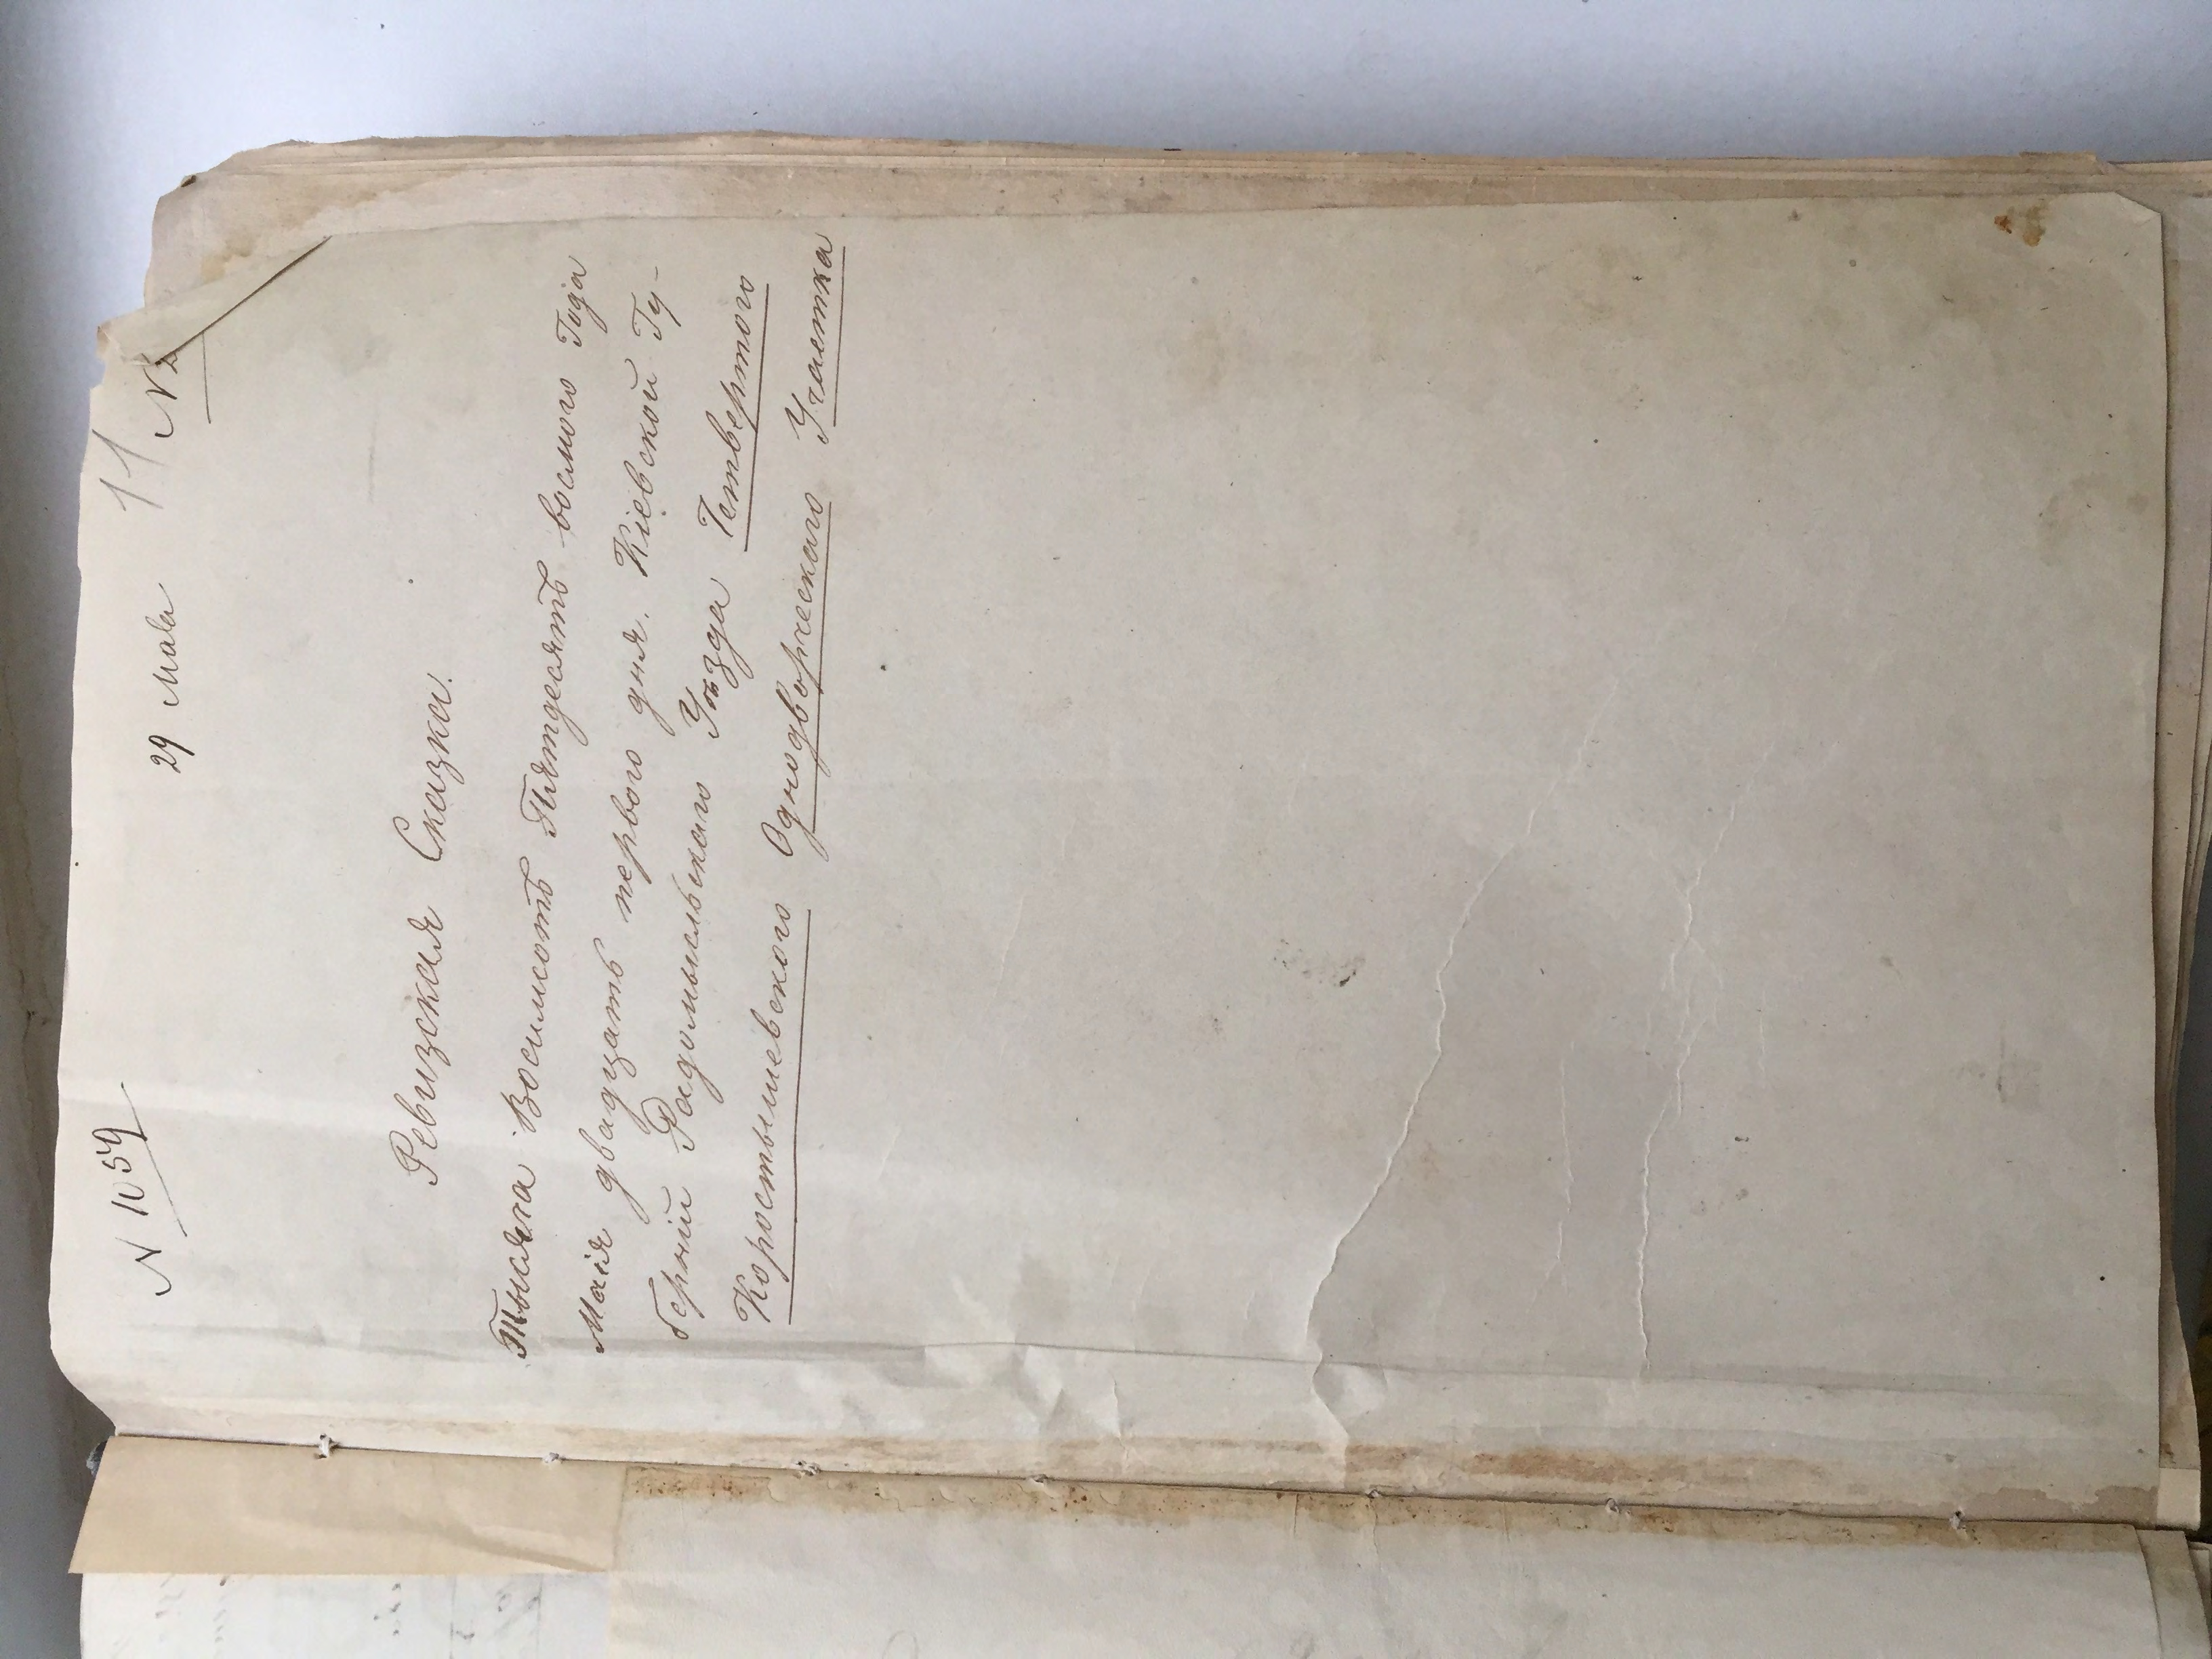 N 1059
29 Мая
11
N
Ревизская Сказка.
Тысяча Восимсотъ Пятдесятъ восмого Года
Маія двадцать первого дня. Кіевской Гу-
берніи Радомысльского Уѣзда Четвертого
Коростышевского Однодворческаго Участка